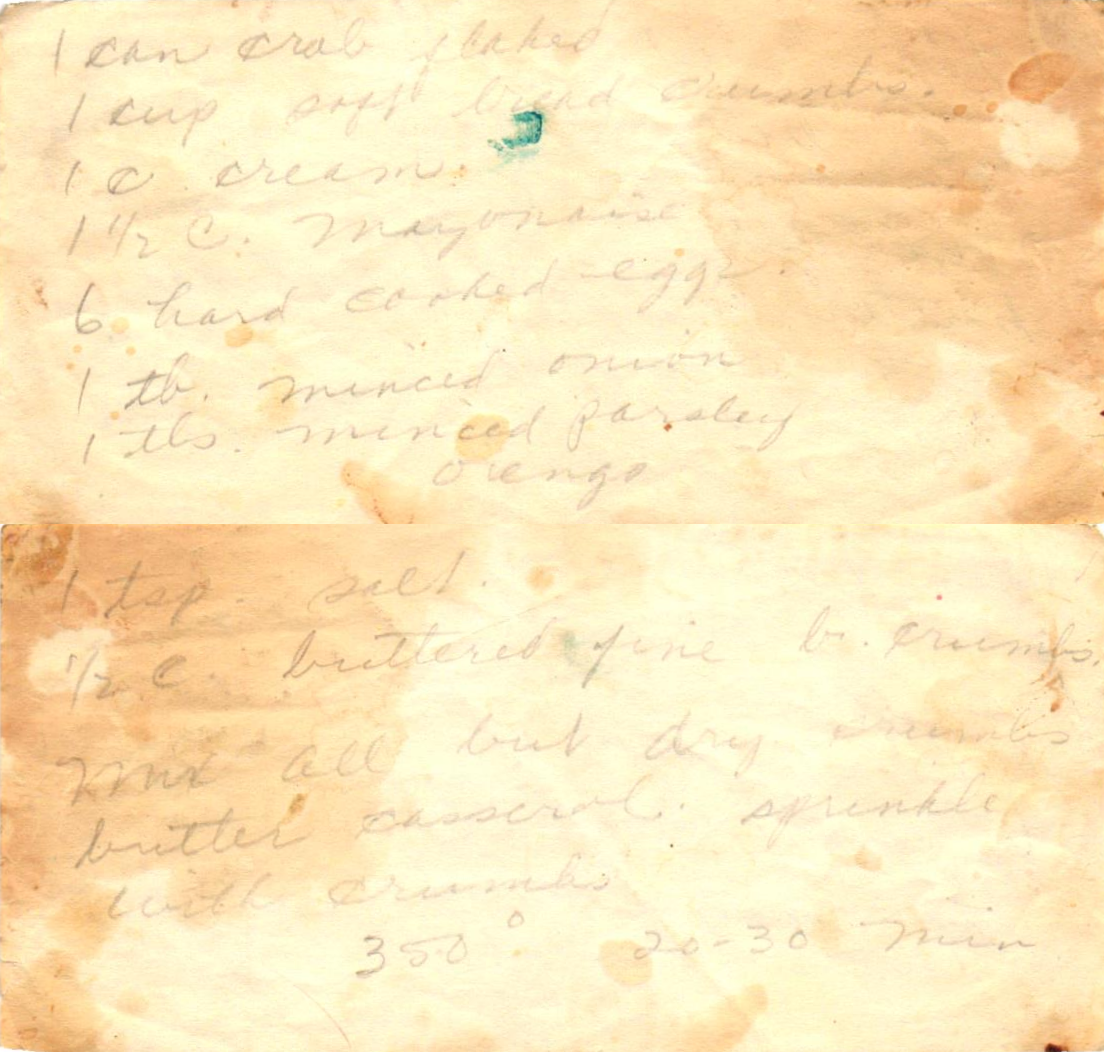 1 can crab flaked
1 cup soft bread crumbs.
1 C cream
1 1/2 C. Mayonaise
6 hard cooked eggs.
1 tb. minced onion
1 tbs. minced parsley
orengo
1 tsp. salt.
1/2 C. buttered fine br. crumbs.
Mix all but dry crumbs
butter casserol. sprinkle
with crumbs
350° 20-30 Min